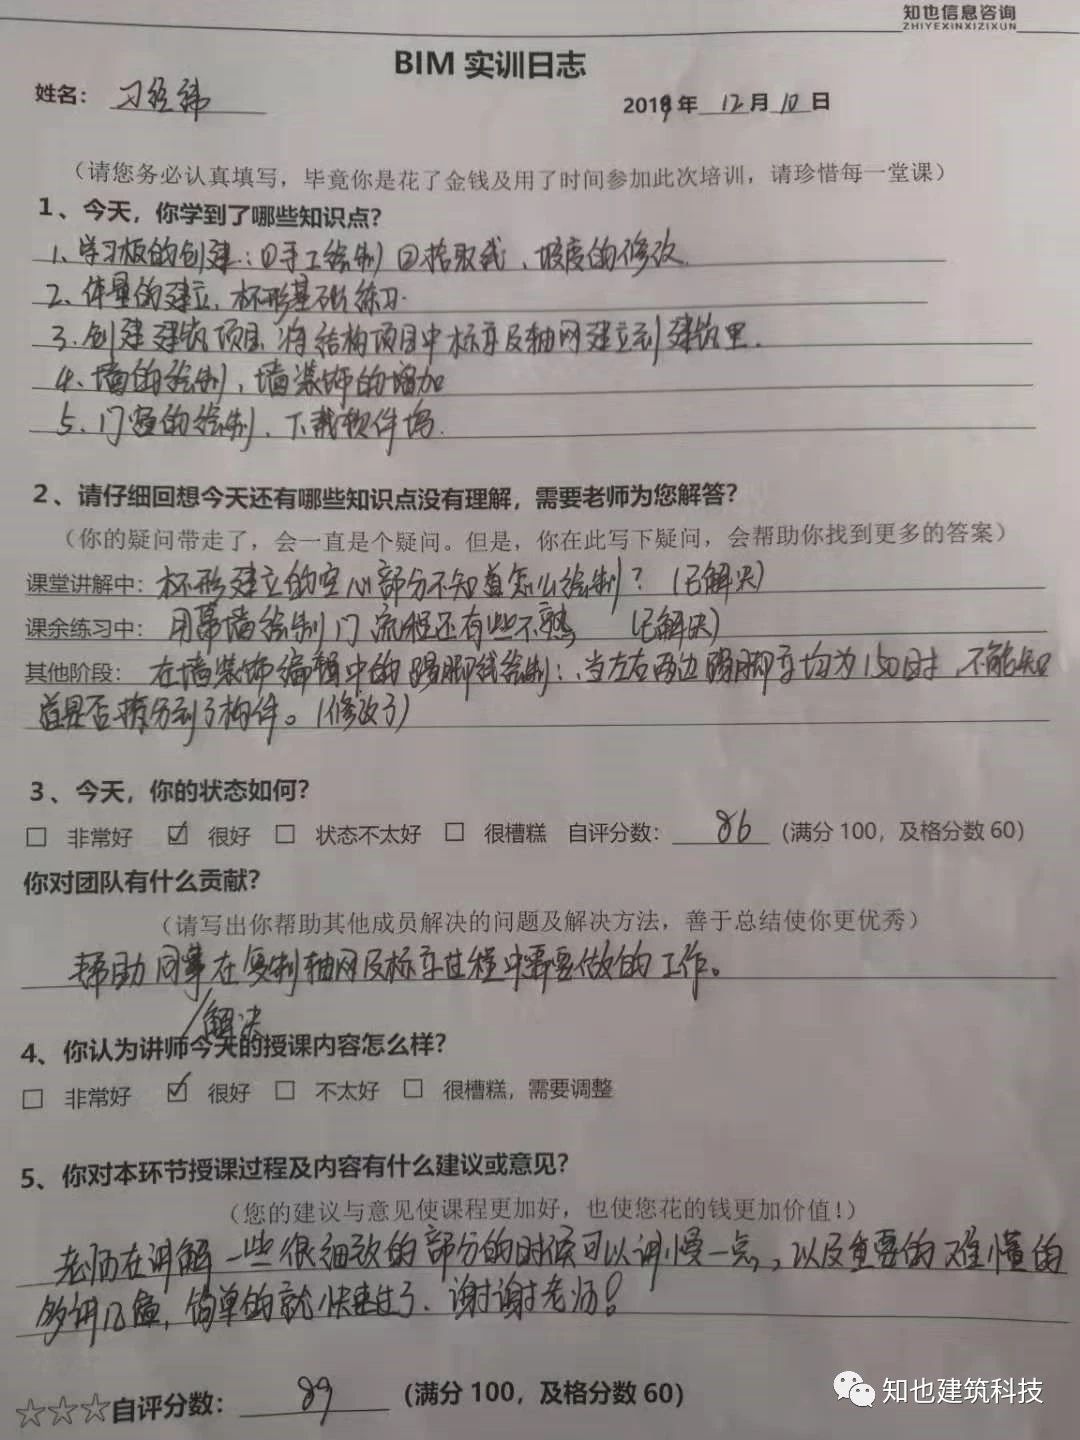 知也信息咨询
ZHIYEXINXIZIXUN
BIM 实训日志
姓名： 刁经纬
2019年 12月 10日
（请您务必认真填写，毕竟你是花了金钱及用了时间参加此次培训，请珍惜每一堂课）
1、今天，你学到了哪些知识点？
1、学习板的创建：①手工绘制 ②拾取线、坡度的修改.
2、体量的建立，杯形基础练习.
3、创建建筑项目，将结构项目中标高及轴网建立到建筑里.
4、墙的绘制，墙装饰的增加
5、门窗的绘制、下载软件坞.
2、请仔细回想今天还有哪些知识点没有理解，需要老师为您解答？
（你的疑问带走了，会一直是个疑问。但是，你在此写下疑问，会帮助你找到更多的答案）
课堂讲解中：杯形建立的空心部分不知道怎么绘制？（已解决）
课余练习中： 用幕墙绘制门流程还有些不熟 （已解决）
其他阶段： 在墙装饰编辑中的踢脚线绘制：当左右两边踢脚高均为150时，不能知
道是否拆分到了构件。（修改了）
3、今天，你的状态如何？
☐ 非常好 ☑ 很好 ☐ 状态不太好 ☐ 很槽糕 自评分数： 86 （满分 100，及格分数 60）
你对团队有什么贡献？
（请写出你帮助其他成员解决的问题及解决方法，善于总结使你更优秀）
帮助同事在复制轴网及标高过程中需要做的工作。
解决
4、你认为讲师今天的授课内容怎么样？
☐ 非常好 ☑ 很好 ☐ 不太好 ☐ 很槽糕，需要调整
5、你对本环节授课过程及内容有什么建议或意见？
（您的建议与意见使课程更加好，也使您花的钱更加价值！）
老师在讲解一些很细致的部分的时候可以讲慢一点，以及重要的难懂的
多讲几遍，简单的就快速过了.谢谢老师！
☆☆☆自评分数： 89 （满分 100，及格分数 60）
知也建筑科技